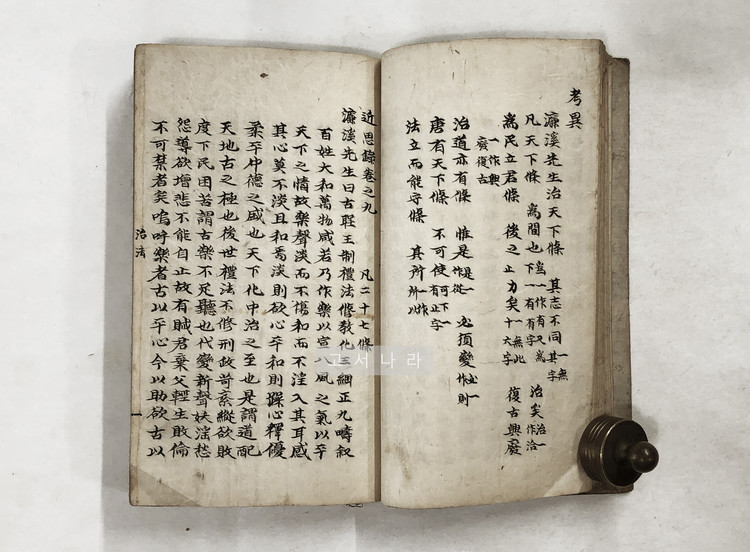 考異
濂溪先生治天下條 其志不同 一無其字
凡天下條 爲間也 爲一作有又爲下一有有字 治矣 治一作洽
爲民立君條 後之止力矣 一無此十六字 復古興廢
一作興廢復古
治道亦有條 惟是 是一作從 必須變 必一作則
唐有天下條 不可使 可下一有止字
法立而能守條 其所以
近思錄卷之九 凡二十七條
濂溪先生曰古聖王制禮法修敎化三綱正九疇叙
百姓大和萬物咸若乃作樂以宣八風之氣以平
天下之情故樂聲淡而不傷和而不淫入其耳感
其心莫不淡且和焉淡則欲心平和則躁心釋優
柔平中德之盛也天下化中治之至也是謂道配
天地古之極也後世禮法不修刑政苛紊縱欲敗
度下民困苦謂古樂不足聽也代變新聲妖淫愁
怨導欲增悲不能自止故有賊君棄父輕生敗倫
不可禁者矣嗚呼樂者古以平心今以助欲古以
治法 一
고서나라